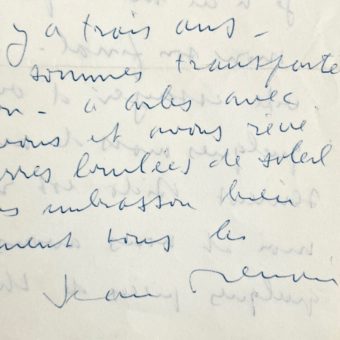 y a trois ans -
sommes transporté
on - à arles avec
vous et avons rêvé
rres brulées de soleil
s embrasson bien
ment tous les
Jean Renoir